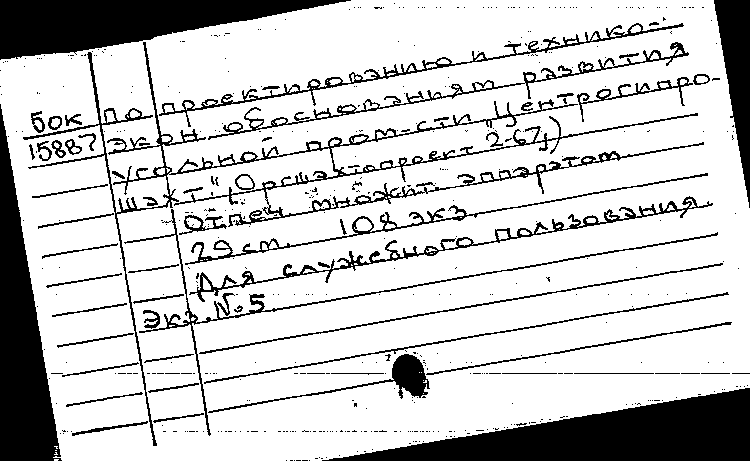 бок по проектированию и технико-
15887 экон. обоснованиям развития
угольной пром-сти „Центрогипро-
шахт". (Оргшахтопроект 2-67г)
Отпеч. множит. аппаратом
29 см. 108 экз.
Для служебного пользования.
Экз. № 5.